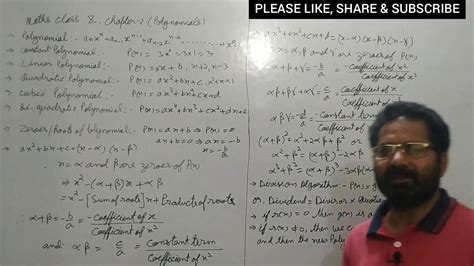 PLEASE LIKE, SHARE & SUBSCRIBE
Maths class 8. chapter-2 (Polynomials)
→ Polynomial -
→ constant Polynomial - P(x) =
→ Linear Polynomial -
→ Quadratic Polynomial - P(x) = ax²+bx+c
→ Cubic Polynomial - P(x) = ax³+bx²+cx+d
→ Bi-quadratic Polynomial - P(x) = ax⁴+bx³+cx²+dx+e
→ Zeroes/Roots of Polynomial - P(x) = ax+b ⇒ P(x) = 0
ax+b=0 ⇒ ax=-b
x = -b/a
→ ax²+bx+c = (x-α)(x-β)
x = α and β are zeroes of P(x)
⇒ x²-(α+β)x+αβ
= x²-[Sum of roots]x+Product of roots
α+β = -b/a = -coefficient of x / coefficient of x²
and αβ = c/a = Constant term / Coefficient of x²
ax³+bx²+cx+d = (x-α)(x-β)(x-γ)
x = α, β and γ are zeroes of P(x)
α+β+γ = -b/a = -coefficient of x² / coefficient of x³
αβ+βγ+γα = c/a = coefficient of x / coefficient of x³
αβγ = -d/a = -Constant term
(α+β)² = α²+2αβ+β²
α²+β² = (α+β)²-2αβ
→ Division Algorithm - P(x) =
or Dividend = Divisor x
→ if r(x) = 0, then g(x) is a
→ if r(x) ≠ 0, then we
and then the new